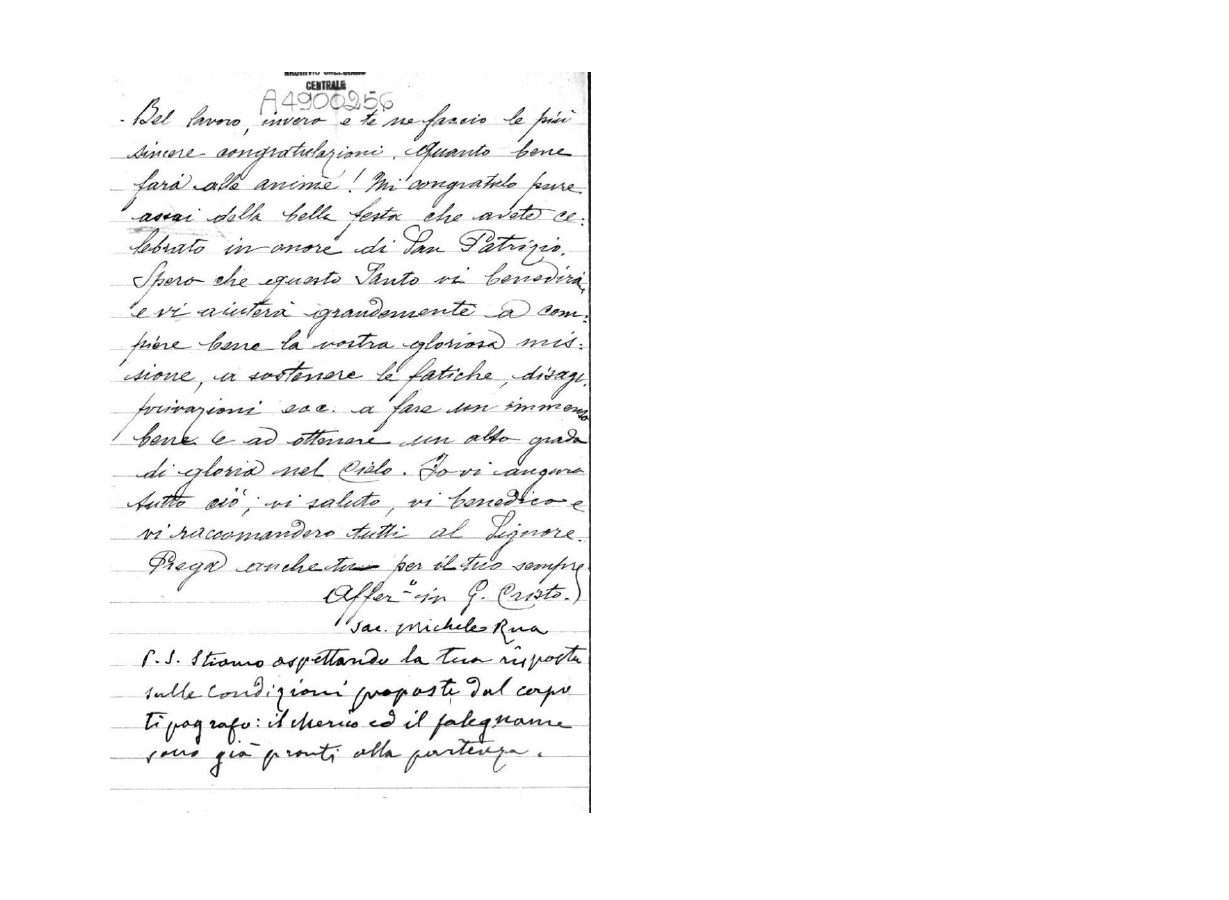 ARCHIVIO SALESIANO
CENTRALE
A4900256
Bel lavoro, invero e te ne faccio le più
sincere congratulazioni. Quanto bene
farà alle anime! Mi congratulo pure
assai della bella festa che avete ce:
lebrato in onore di San Patrizio.
Spero che questo Santo vi benedirà,
e vi aiuterà grandemente a com:
piere bene la vostra gloriosa mis:
sione, a sostenere le fatiche, disagi,
privazioni ecc. a fare un immenso
bene e ad ottenere un alto grado
di gloria nel Cielo. Io vi auguro
tutto ciò, vi saluto, vi benedico e
vi raccomandero tutti al Signore.
Prega anche tu per il tuo sempre
Affez.º in G. Cristo.
Sac. Michele Rua
P. S. Stiamo aspettando la tua risposta
sulle condizioni proposte dal capo
tipografo: il cherico ed il falegname
sono già pronti alla partenza.